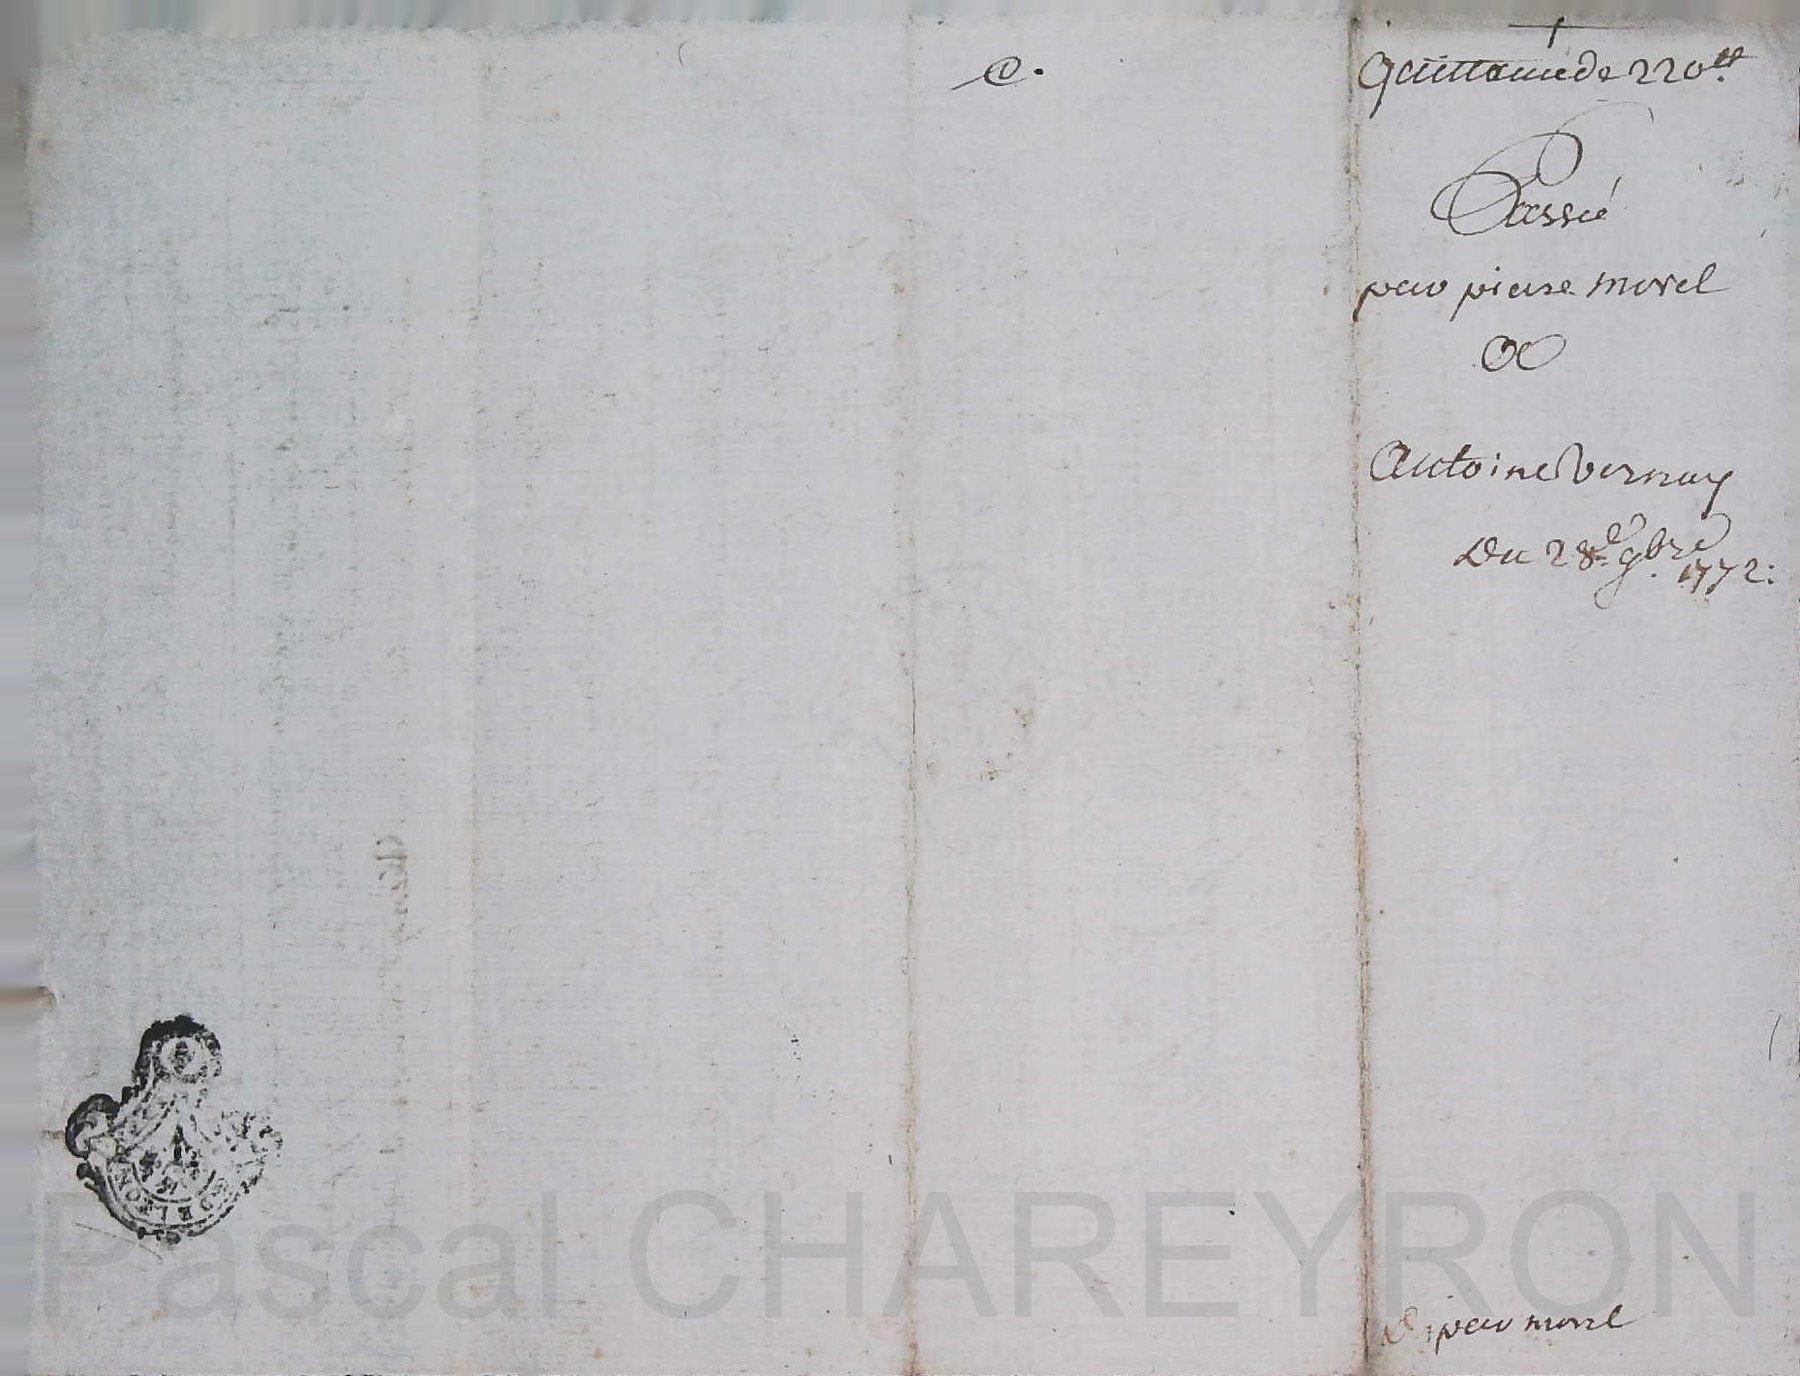 @.
Quittance de 220tt
Passée
par pierre morel
a
Antoine Vernay
Du 28e. 9bre 1772:
DE LYON
par morel
Pascal CHAREYRON